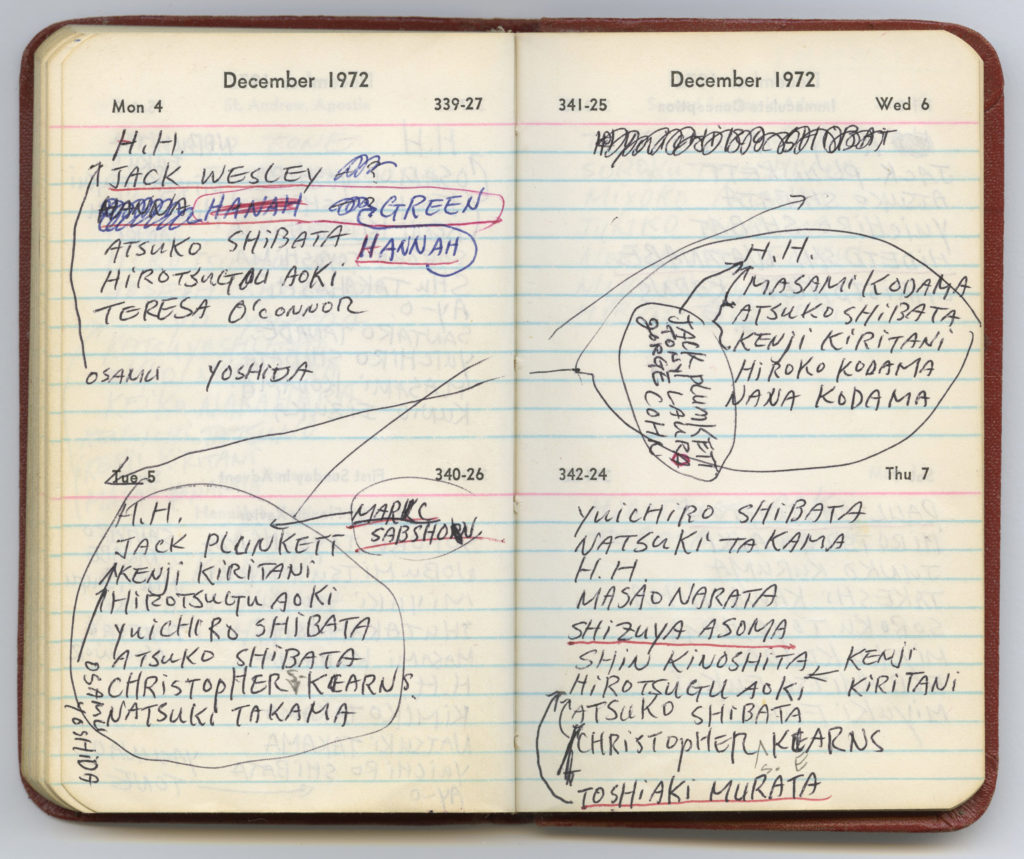 December 1972
Mon 4 339-27
H.H.
JACK WESLEY
HANAH GREEN
HANNAH
ATSUKO SHIBATA
HIROTSUGU AOKI
TERESA O'CONNOR
OSAMU YOSHIDA
Tue 5 340-26
H.H.
MARC
SABSHORN
JACK PLUNKETT
KENJI KIRITANI
HIROTSUGU AOKI
YUICHIRO SHIBATA
ATSUKO SHIBATA
CHRISTOPHER S. KEARNS
NATSUKI TAKAMA
OSAMU YOSHIDA
December 1972
341-25 Wed 6
H.H.
MASAMI KODAMA
ATSUKO SHIBATA
KENJI KIRITANI
HIROKO KODAMA
NANA KODAMA
JACK PLUNKETT
TONY LAURA
GORGE COHN
342-24 Thu 7
YUICHIRO SHIBATA
NATSUKI TAKAMA
H.H.
MASAO NARATA
SHIZUYA ASOMA
SHIN KINOSHITA
KENJI
KIRITANI
HIROTSUGU AOKI
ATSUKO SHIBATA
CHRISTOPHER S. KEARNS
TOSHIAKI MURATA